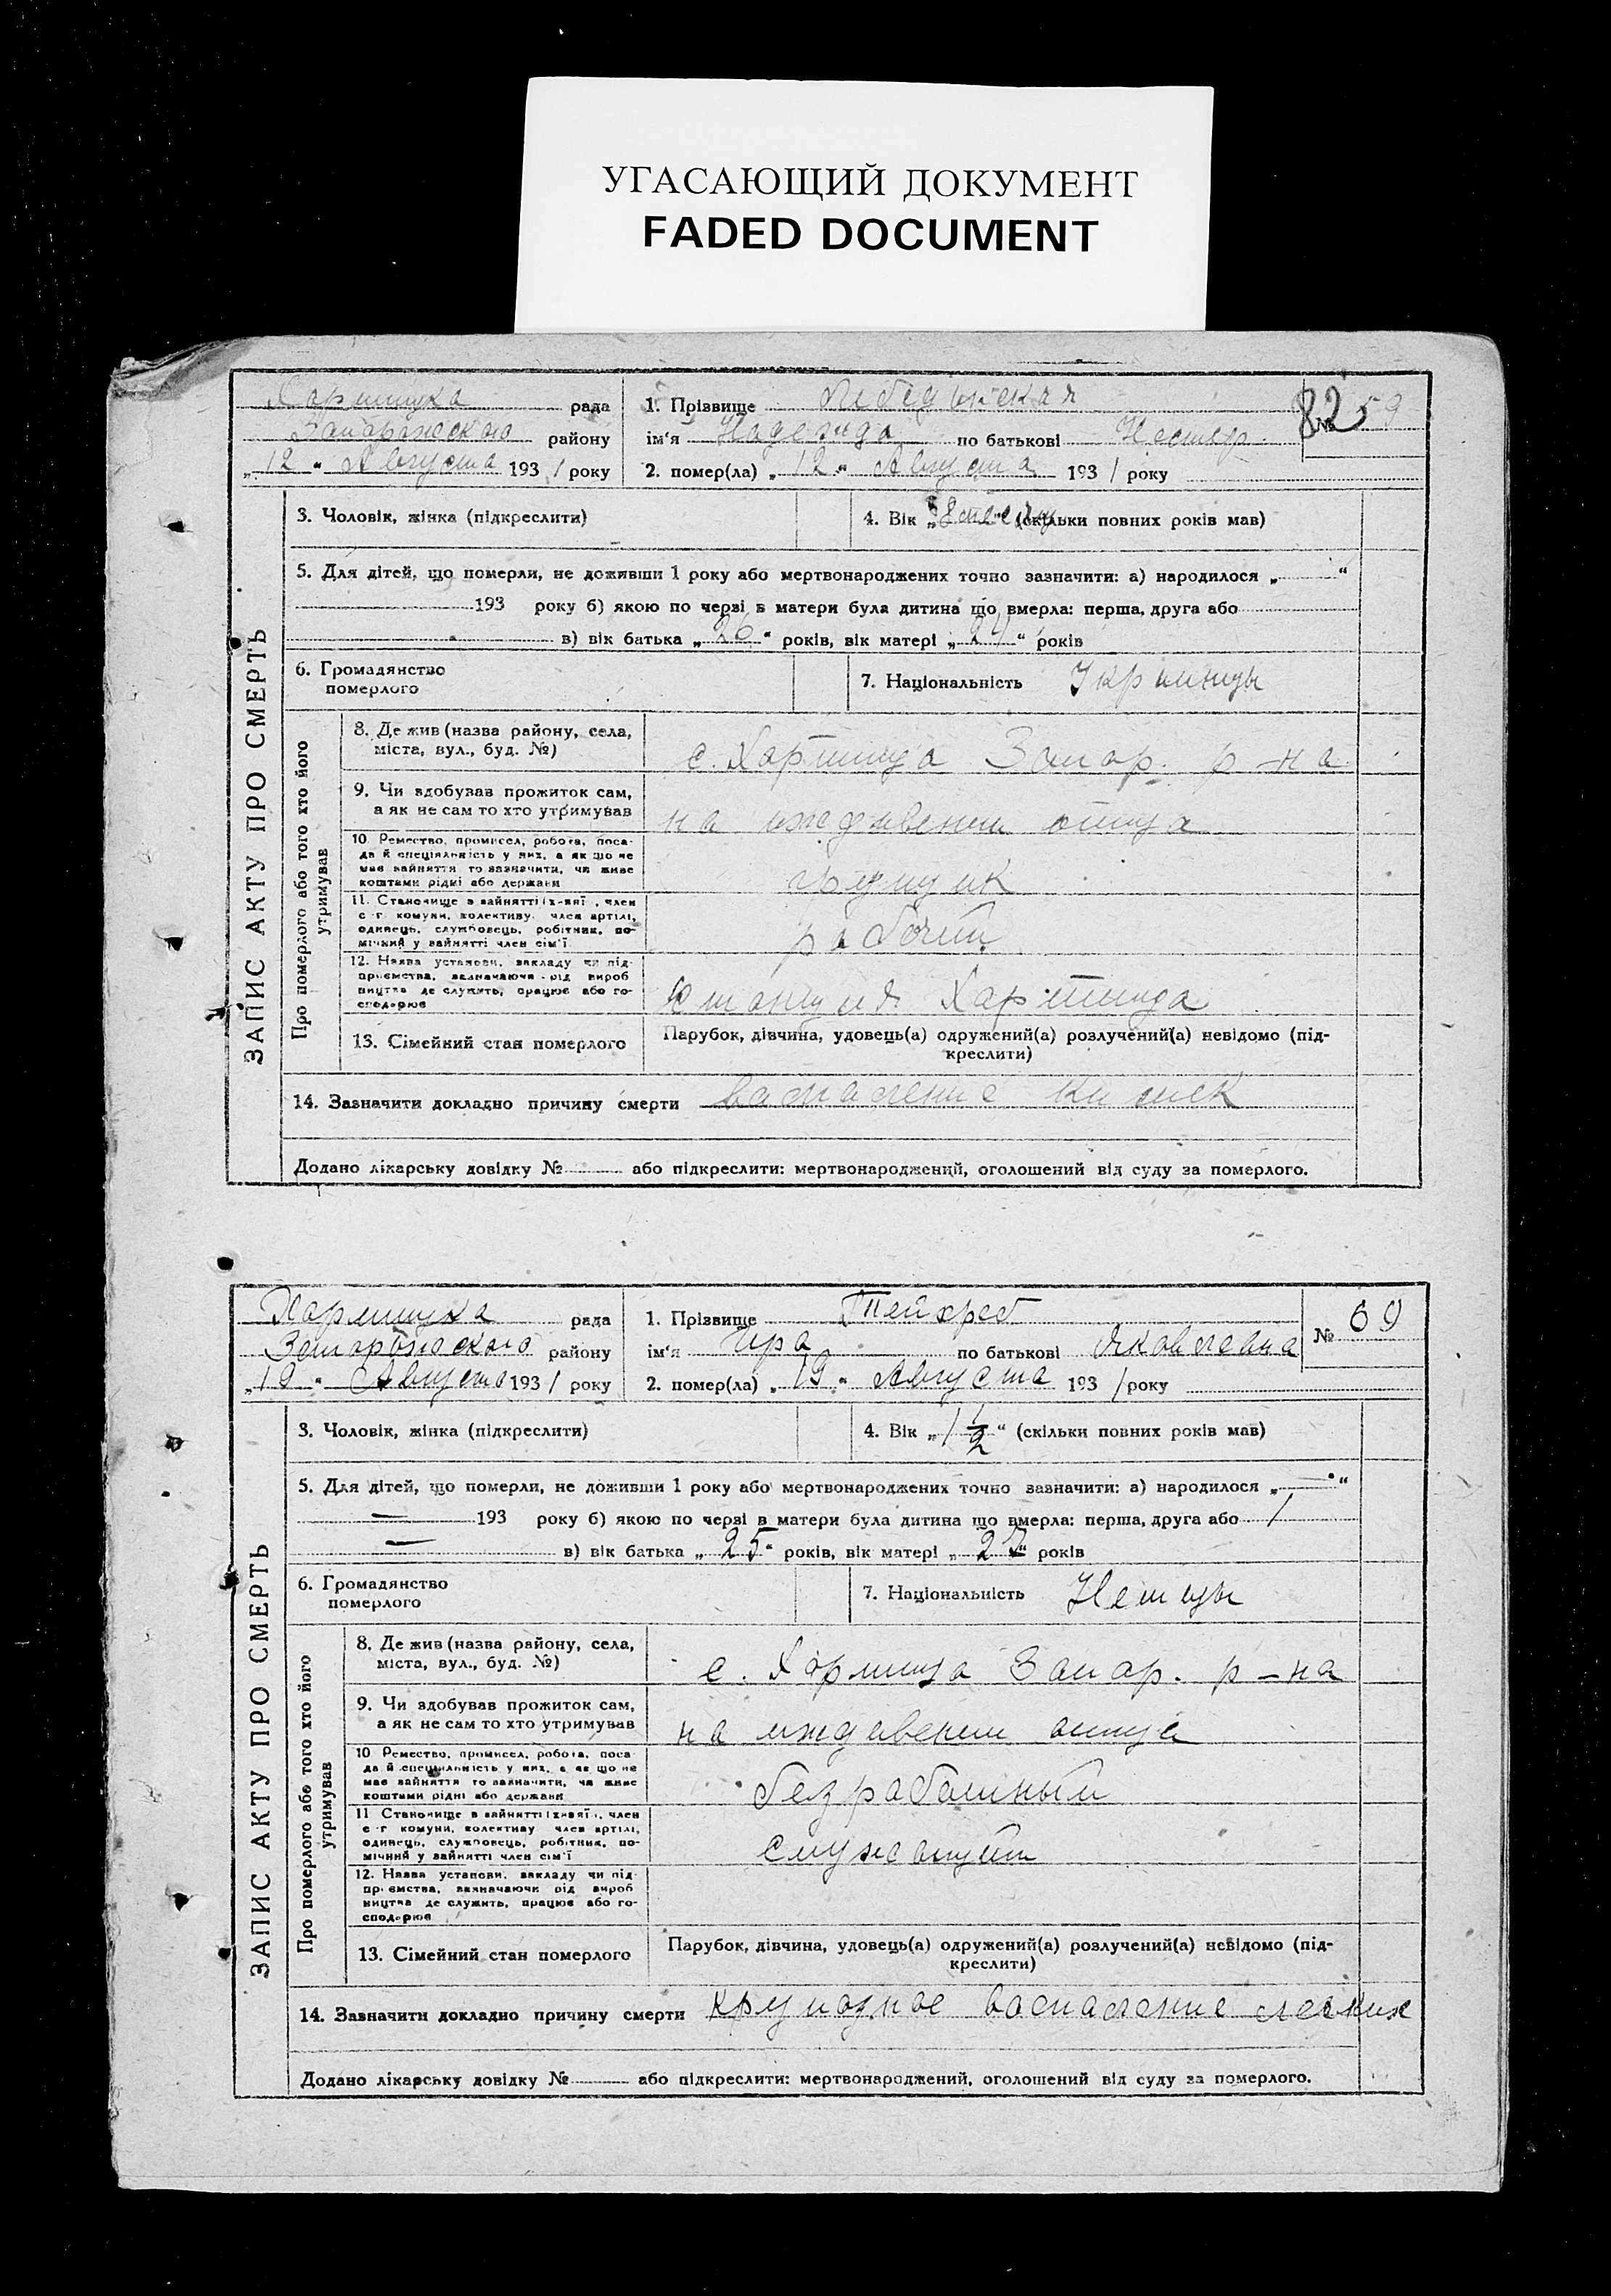 УГАСАЮЩИЙ ДОКУМЕНТ
FADED DOCUMENT
рада
1. Прізвище
82 59
Запорожского району
ім'я Надежда по батькові Нестер.
„12“ Августа 1931 року
2. помер(ла) „12“ Августа 1931 року
3. Чоловік, жінка (підкреслити)
4. Вік (скільки повних років мав)
5. Для дітей, що померли, не доживши 1 року або мертвонароджених точно зазначити: а) народилося „ “
193 року б) якою по черзі в матери була дитина що вмерла: перша, друга або
в) вік батька „26“ років, вік матері „ “ років
6. Громадянство
померлого
7. Національність Украинцы
ЗАПИС АКТУ ПРО СМЕРТЬ
Про померлого або того хто його
утримував
8. Де жив (назва району, села,
міста, вул., буд. №)
с. Хортица Запор. р-на
9. Чи здобував прожиток сам,
а як не сам то хто утримував
на иждивении отца
10 Ремество, промисел, робота, поса-
да й спеціяльність у них, а як що не
має зайняття то зазначити, чи живе
коштами рідні або держави
грузчик
11. Становище в зайнятті (хазяї, член
с-г комуни, колективу, член артілі,
одинець, службовець, робітник, по-
мічний у зайнятті член сім'ї
рабочий
12. Назва установи, закладу чи під-
приємства, зазначаючи рід вироб
ництва де служить, працює або го-
сподарює
станция Хортица
13. Сімейний стан померлого
Парубок, дівчина, удовець(а) одружений(а) розлучений(а) невідомо (під-
креслити)
14. Зазначити докладно причину смерти воспаление кишек
Додано лікарську довідку № або підкреслити: мертвонароджений, оголошений від суду за померлого.
рада
1. Прізвище
№ 60
Запорожского району
ім'я Ира по батькові Яковлевна
„19“ Августа 1931 року
2. помер(ла) „19“ Августа 1931 року
3. Чоловік, жінка (підкреслити)
4. Вік „1 1/2“ (скільки повних років мав)
5. Для дітей, що померли, не доживши 1 року або мертвонароджених точно зазначити: а) народилося „—“
— 193 року б) якою по черзі в матери була дитина що вмерла: перша, друга або /
— в) вік батька „25“ років, вік матері „ “ років
6. Громадянство
померлого
7. Національність Немцы
ЗАПИС АКТУ ПРО СМЕРТЬ
Про померлого або того хто його
утримував
8. Де жив (назва району, села,
міста, вул., буд. №)
с. Хортица Запор. р-на
9. Чи здобував прожиток сам,
а як не сам то хто утримував
на иждивении отца
10 Ремество, промисел, робота, поса
да й спеціяльність у них, а як що не
має зайняття то зазначити, чи живе
коштами рідні або держави
безработный
11 Становище в зайнятті (хазяї, член
с-г комуни, колективу член артілі,
одинець, службовець, робітник, по-
мічний у зайнятті член сім'ї
служащий
12. Назва установи, закладу чи під
приємства, зазначаючи рід вироб
ництва де служить, працює або го-
сподарює
13. Сімейний стан померлого
Парубок, дівчина, удовець(а) одружений(а) розлучений(а) невідомо (під-
креслити)
14. Зазначити докладно причину смерти крупозное воспаление легких
Додано лікарську довідку № або підкреслити: мертвонароджений, оголошений від суду за померлого.